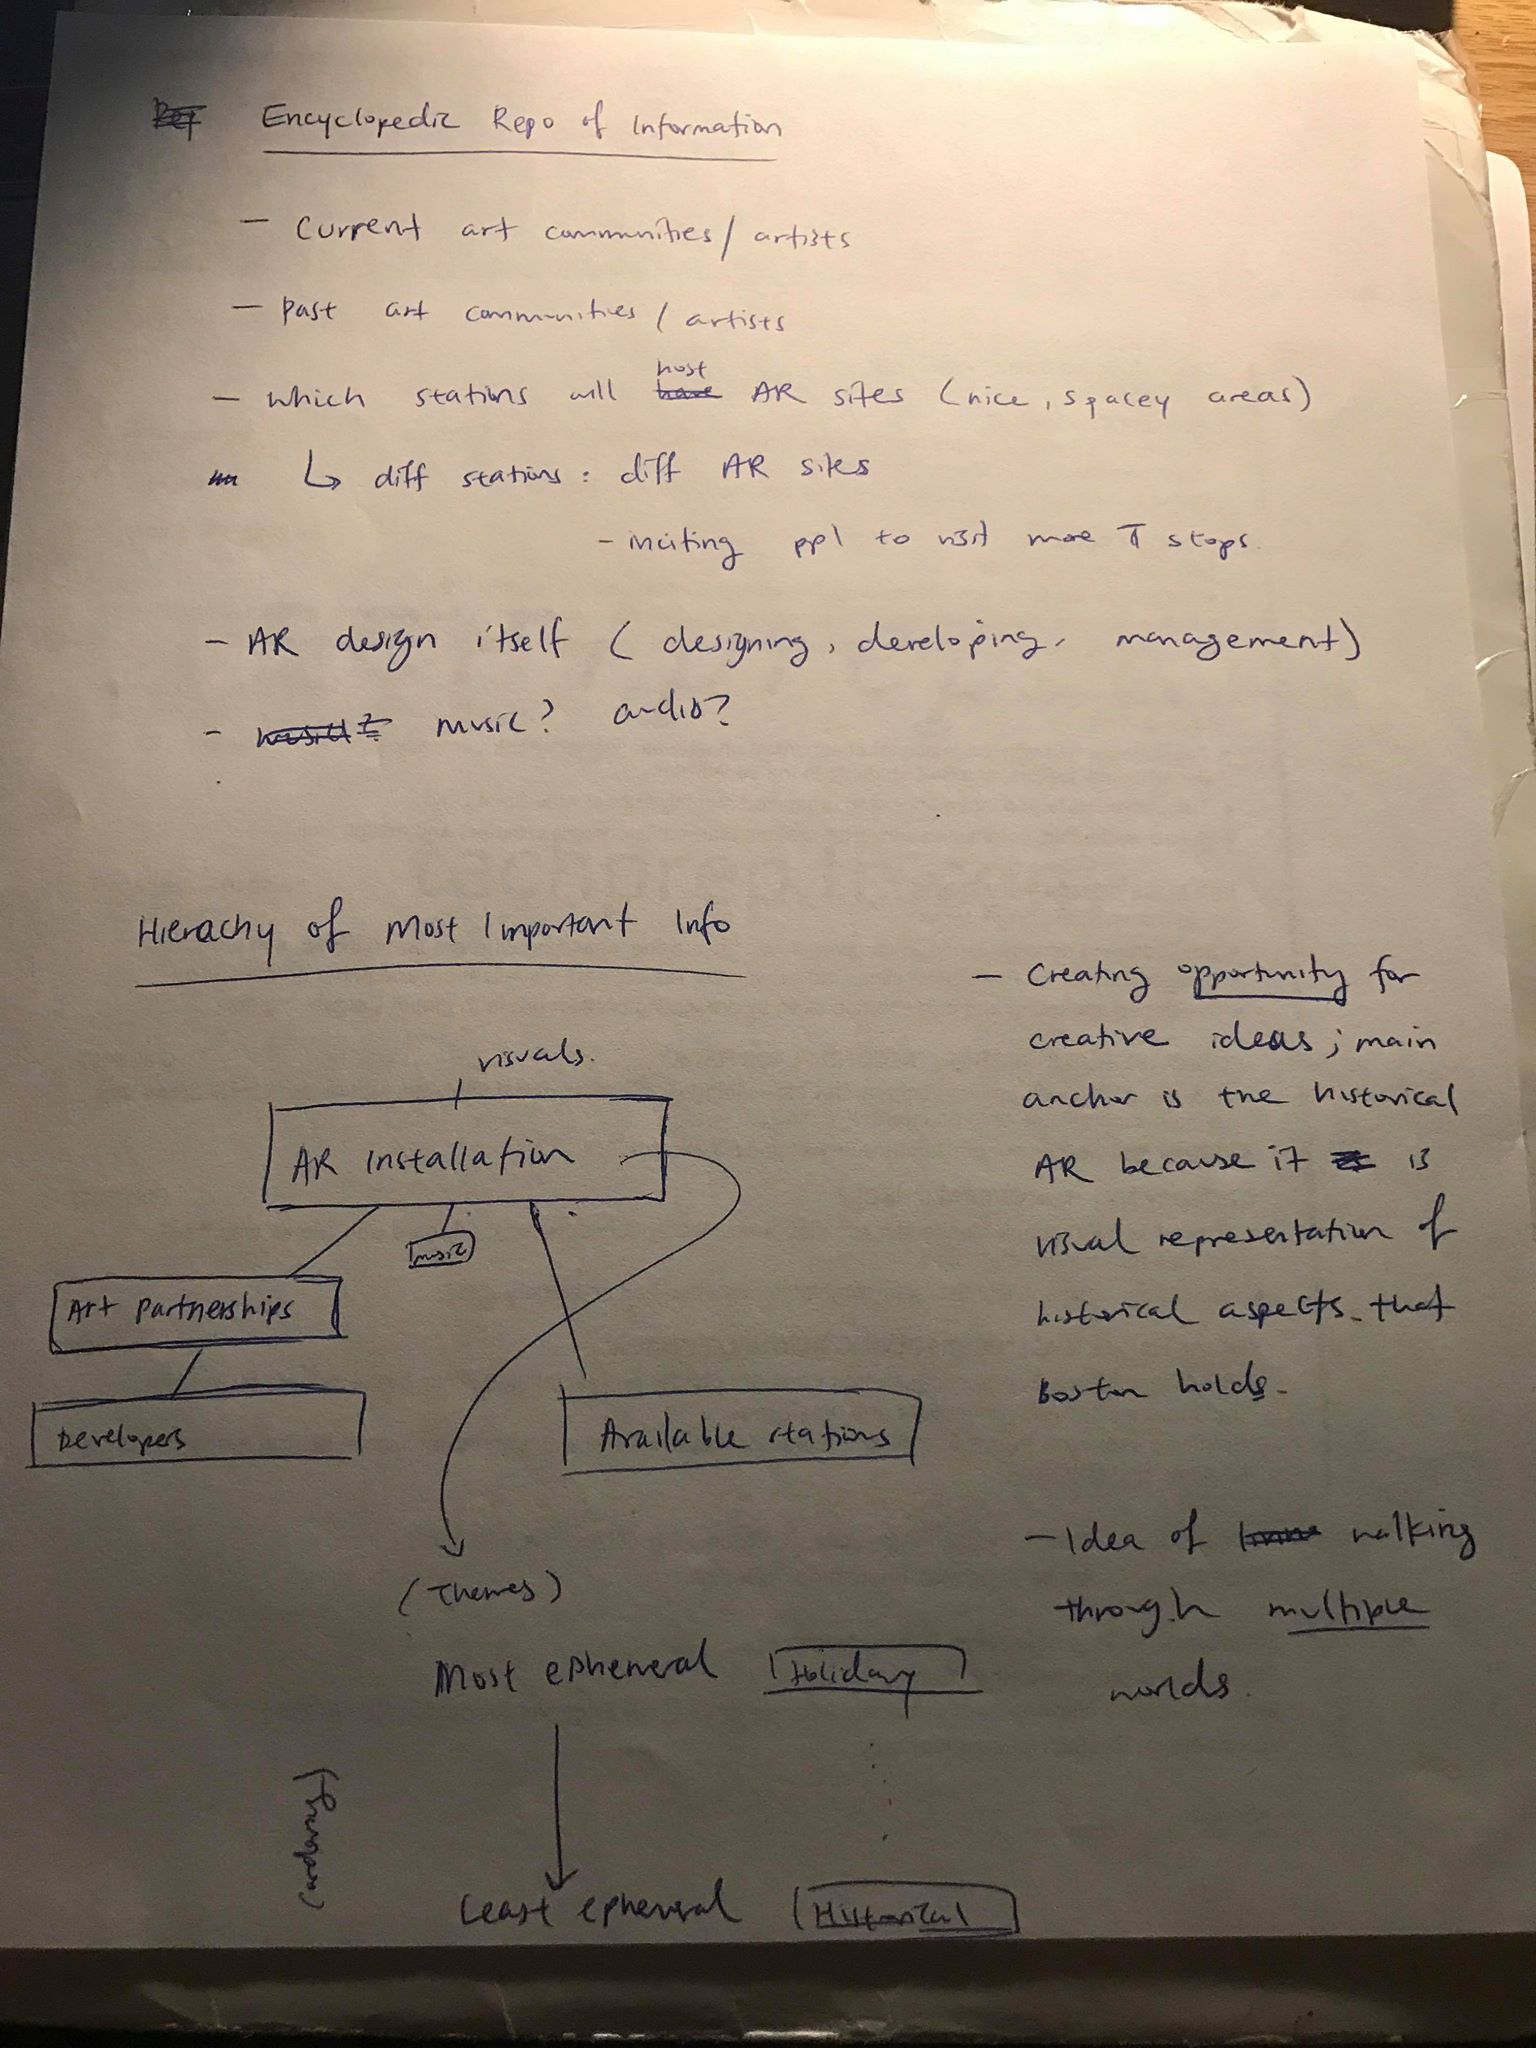 Encyclopedic Repo of Information
- Current art communities / artists
- Past art communities / artists
- Which stations will host AR sites (nice, spacey areas)
↳ diff stations : diff AR sites
- inciting ppl to visit more T stops.
- AR design itself ( designing, developing, management)
- music? audio?
Hierachy of Most Important Info
visuals.
AR Installation
music
Art Partnerships
Developers
Available stations
(Themes)
Most ephemeral Holiday
Least ephemeral Historical
- Creating opportunity for
creative ideas ; main
anchor is the historical
AR because it is
visual representation of
historical aspects that
Boston holds.
- Idea of walking
through multiple
worlds.